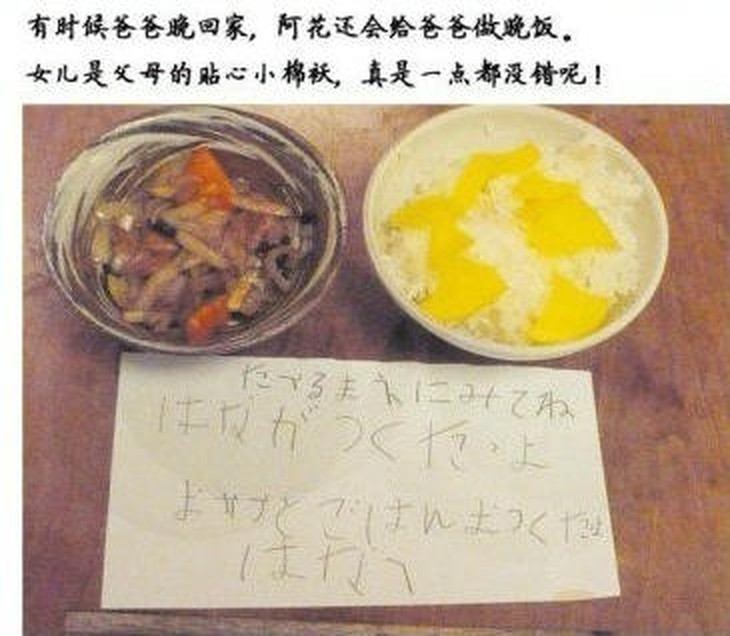 有时候爸爸晚回家，阿花还会给爸爸做晚饭。
女儿是父母的贴心小棉袄，真是一点都没错呢！
たべるまえにみてね
はながつくたよ
おかずとごはんおつくたよ
はなへ